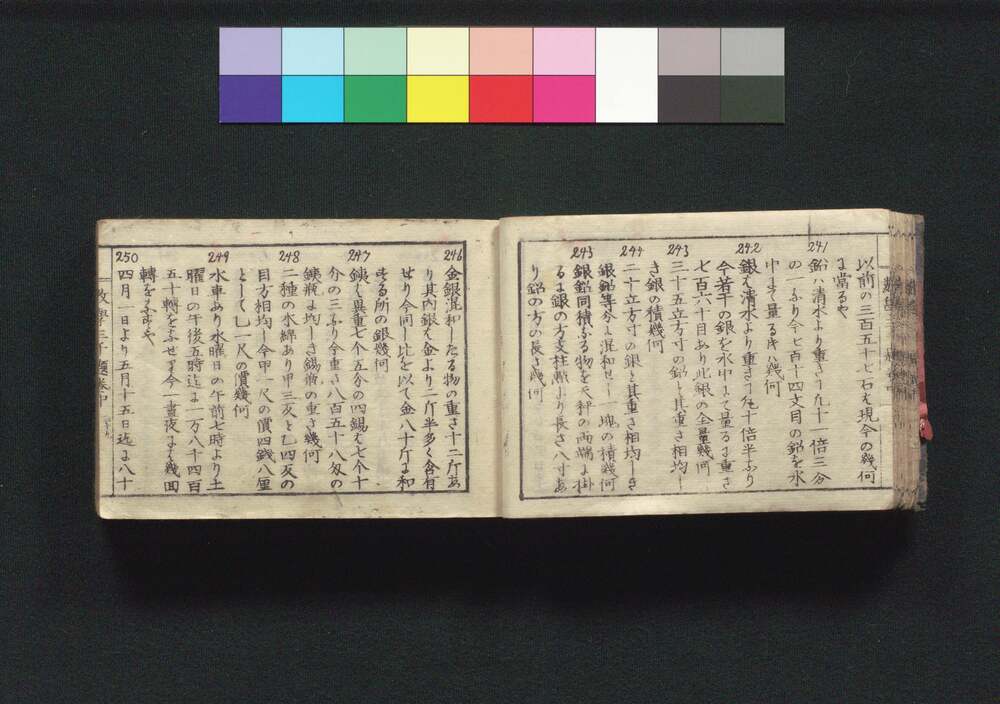 以前の三百五十七石ハ現今の幾何
に當るや
241
鉛ハ清水より重きヿ九十一倍三分
の一なり今七百十四文目の鉛を水
中にて量るキハ幾何
242
銀ハ清水より重きヿ凡十倍半なり
今若干の銀を水中にて量るに重さ
七百六十目あり此銀の全量幾何
243
三十五立方寸の鉛と其重さ相均し
き銀の積幾何
244
二十立方寸の銀と其重さ相均しき
銀鉛等分に混和せし一塊の積幾何
245
銀鉛同積なる物を天秤の両端に掛
るに銀の方支柱際より長さ八寸あ
り鉛の方の長さ幾何
246
金銀混和したる物の重さ十二斤あ
り其内銀ハ金より二斤半多く含有
せり今同し比を以て金八十斤に和
する所の銀幾何
247
銕ハ異重七个五分の四錫ハ七个十
分の三なり今重さ八百五十八匁の
銕瓶に均しき錫瓶の重さ幾何
248
二種の木綿あり甲三反と乙四反の
目方相均し今甲一尺の價四銭八厘
として乙一尺の價幾何
249
水車あり水曜日の午前七時より土
曜日の午後五時迄に一万八千四百
五十轉をなせり今一晝夜にハ幾回
轉をなすや
250
四月一日より五月十五日迄にハ十